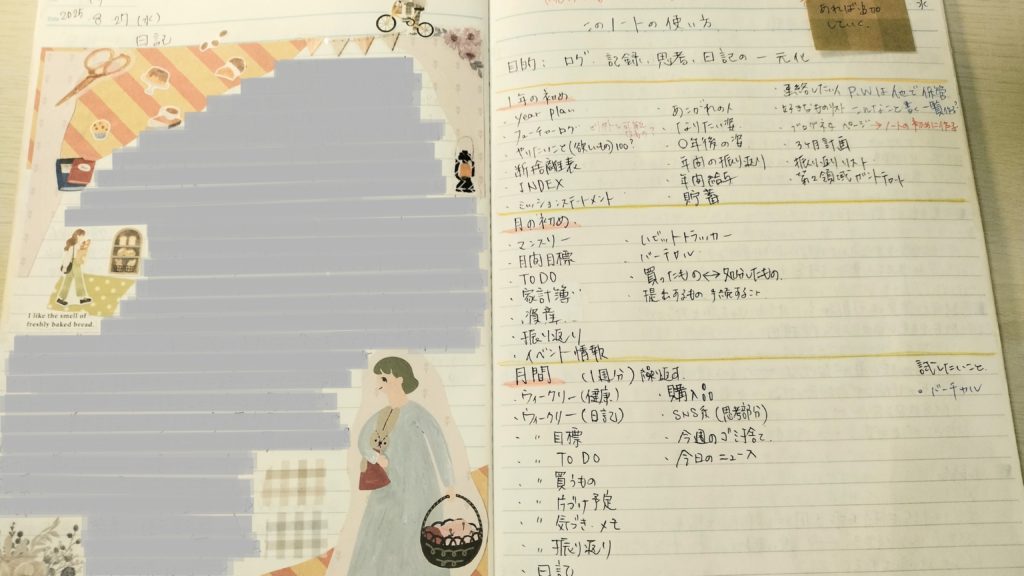 2025 8 27 (水)
日記
I like the smell of
freshly baked bread.
あれば追加
していく。
水
このノートの使い方
目的: ログ、記録、思考、日記の一元化
1年の初め
・year plan
・フューチャーログ
・やりたいこと(欲しいもの)100?
・断捨離表
・INDEX
・ミッションステートメント
・あこがれの人
・なりたい姿
・〇年後の姿
・年間の振り返り
・年間給与
・貯蓄
・連絡したい人 P.W.は他で保管
・好きなものリスト こんなこと書く一覧
・ブログネタ ページ→ノートの初めに作る
・3ヶ月計画
・振り返りリスト
・第2領域ガントチャート
月の初め
・マンスリー
・月間目標
・TO DO
・家計簿
・資産
・振り返り
・イベント情報
・ハビットトラッカー
・バーチカル
・買ったもの↔処分したもの
・提出するもの 手続すること
月間 (1週分) 繰返す
・ウィークリー(健康)
・ウィークリー(日記)
・〃 目標
・〃 TO DO
・〃 買うもの
・〃 片づけ予定
・〃 気づき・メモ
・〃 振り返り
・日記
・購入品
・SNS系(思考部分)
・今週のゴミ捨て
・今日のニュース
試したいこと
・バーチカル